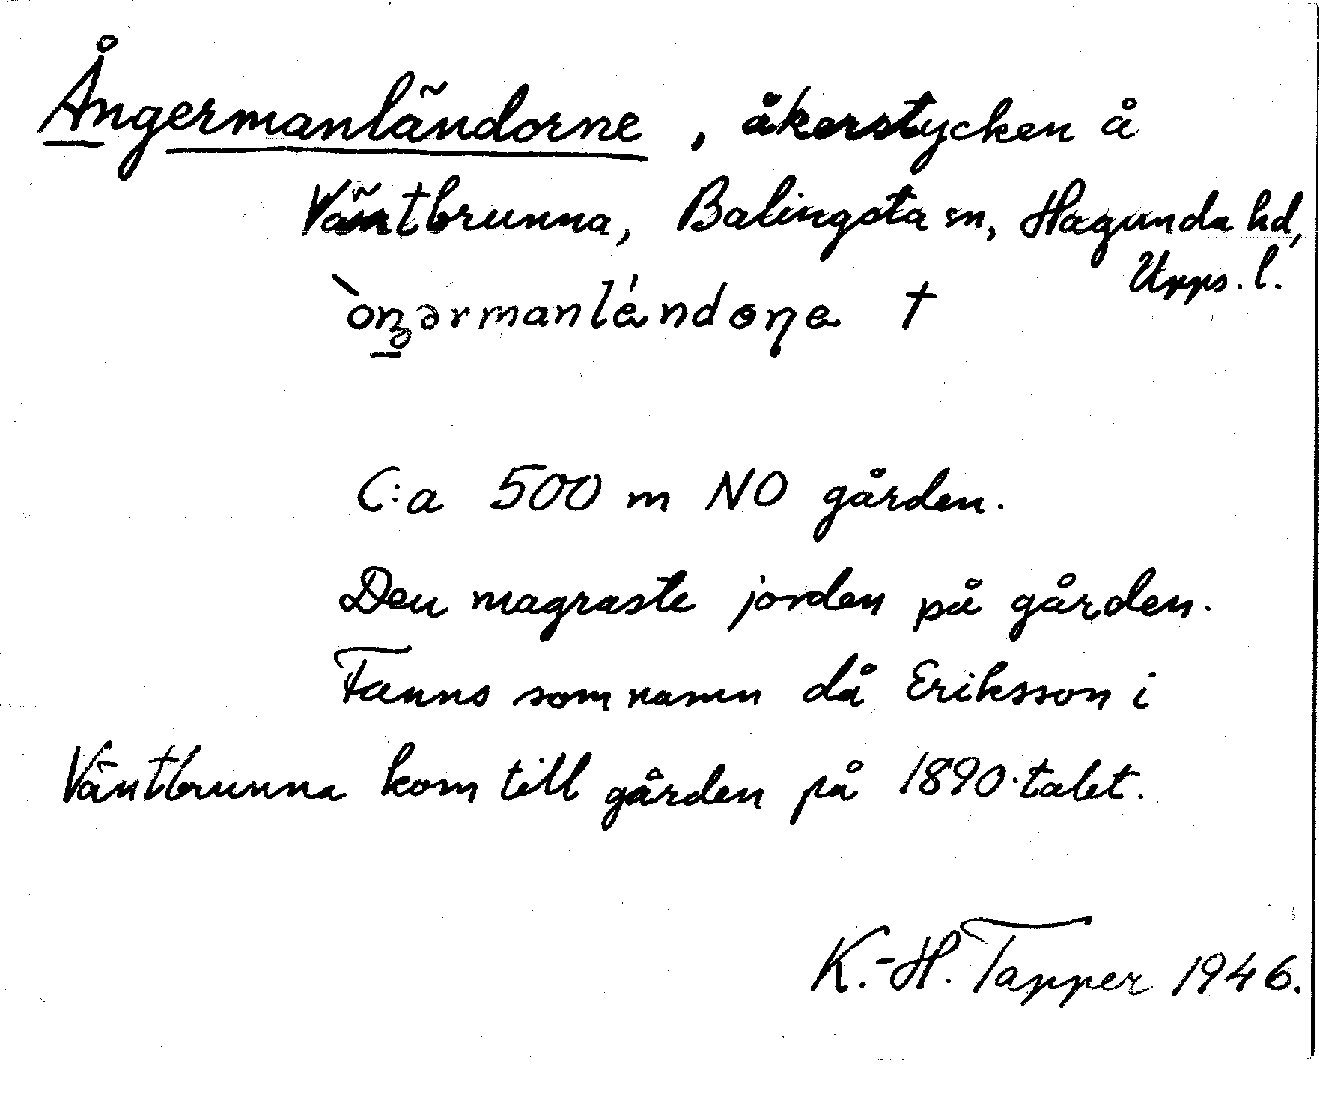 Ångermanländorne, åkerstycken å
Väntbrunna, Balingsta sn, Hagunda hd,
Upps. l.
C:a 500 m NO gården.
Den magraste jorden på gården.
Fanns som namn då Eriksson i
Väntbrunna kom till gården på 1890-talet.
K.-H. Tapper 1946.